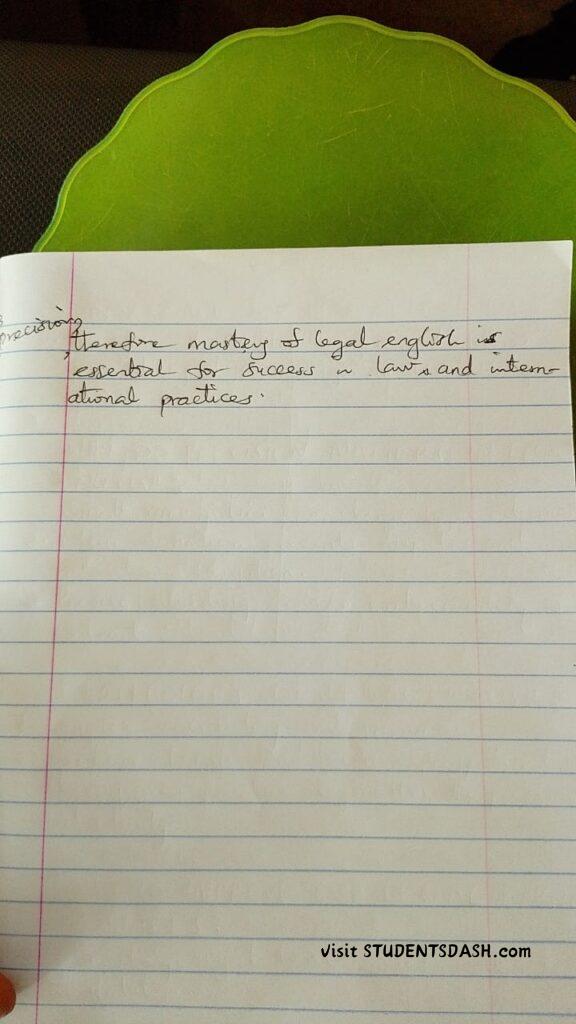 precision
, therefore mastery of legal english is
essential for success in laws and intern-
ational practices.
visit STUDENTSDASH.com